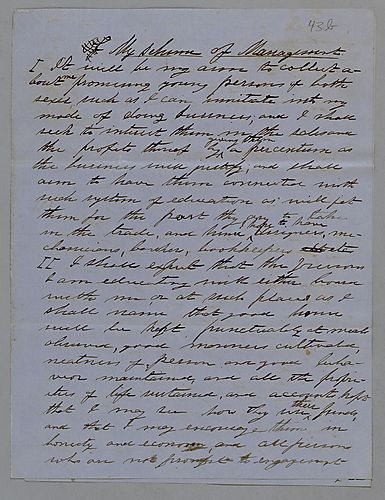 43d
My Scheme of Management
I It will be my aim to collect a-
bout me promising young persons of both
sexes, such as I can initiate into my
mode of doing business, and I shall
seek to interest them in the sales and
the profit thereof by giving them a percentum as
the business will justify, and shall
aim to have them connected with
such system of education as will fit
them for the part they are to take
in the trade, and I hope to have designers, me-
chanicians, bookkeepers
II I shall expect that the persons
I am educating will either board
with me or at such place as I
shall name that good hours
will be kept punctuality at meals
observed, good manners cultivated,
neatness of person and good beha-
vior maintained, and all the propri-
eties of life sustained, and accounts kept
that I may see how they use their funds,
and that I may encourage them in
honesty and economy, and all persons
who are not prompt to engagement